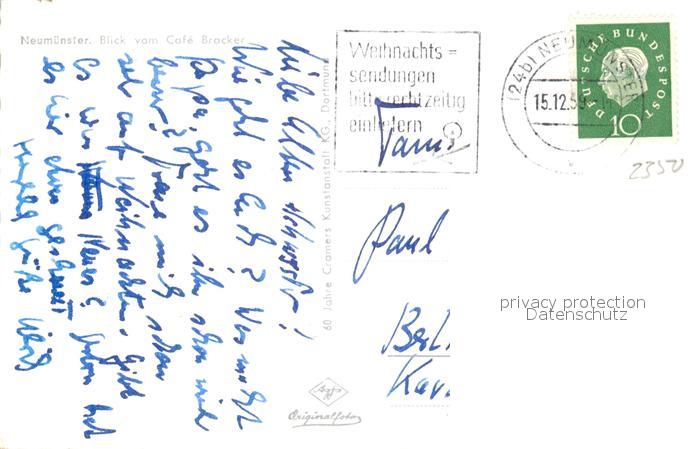 Neumünster. Blick vom Café Bracker
Liebe Eltern
Wie geht es Euch? Was macht
Papa, geht es ihm schon viel
besser? Freue mich schon
sehr auf Weihnachten. Gibt
es was Neues? Gestern hat
es hier etwas geschneit
Herzliche Grüße
60 Jahre Cramers Kunstanstalt KG., Dortmund
Agfa
Originalfoto
Weihnachts=
sendungen
bitte rechtzeitig
einliefern
(24b) NEUMÜNSTER
15.12.59
DEUTSCHE BUNDESPOST
10
23520
Fam.
Paul
Berl
Kar
privacy protection
Datenschutz